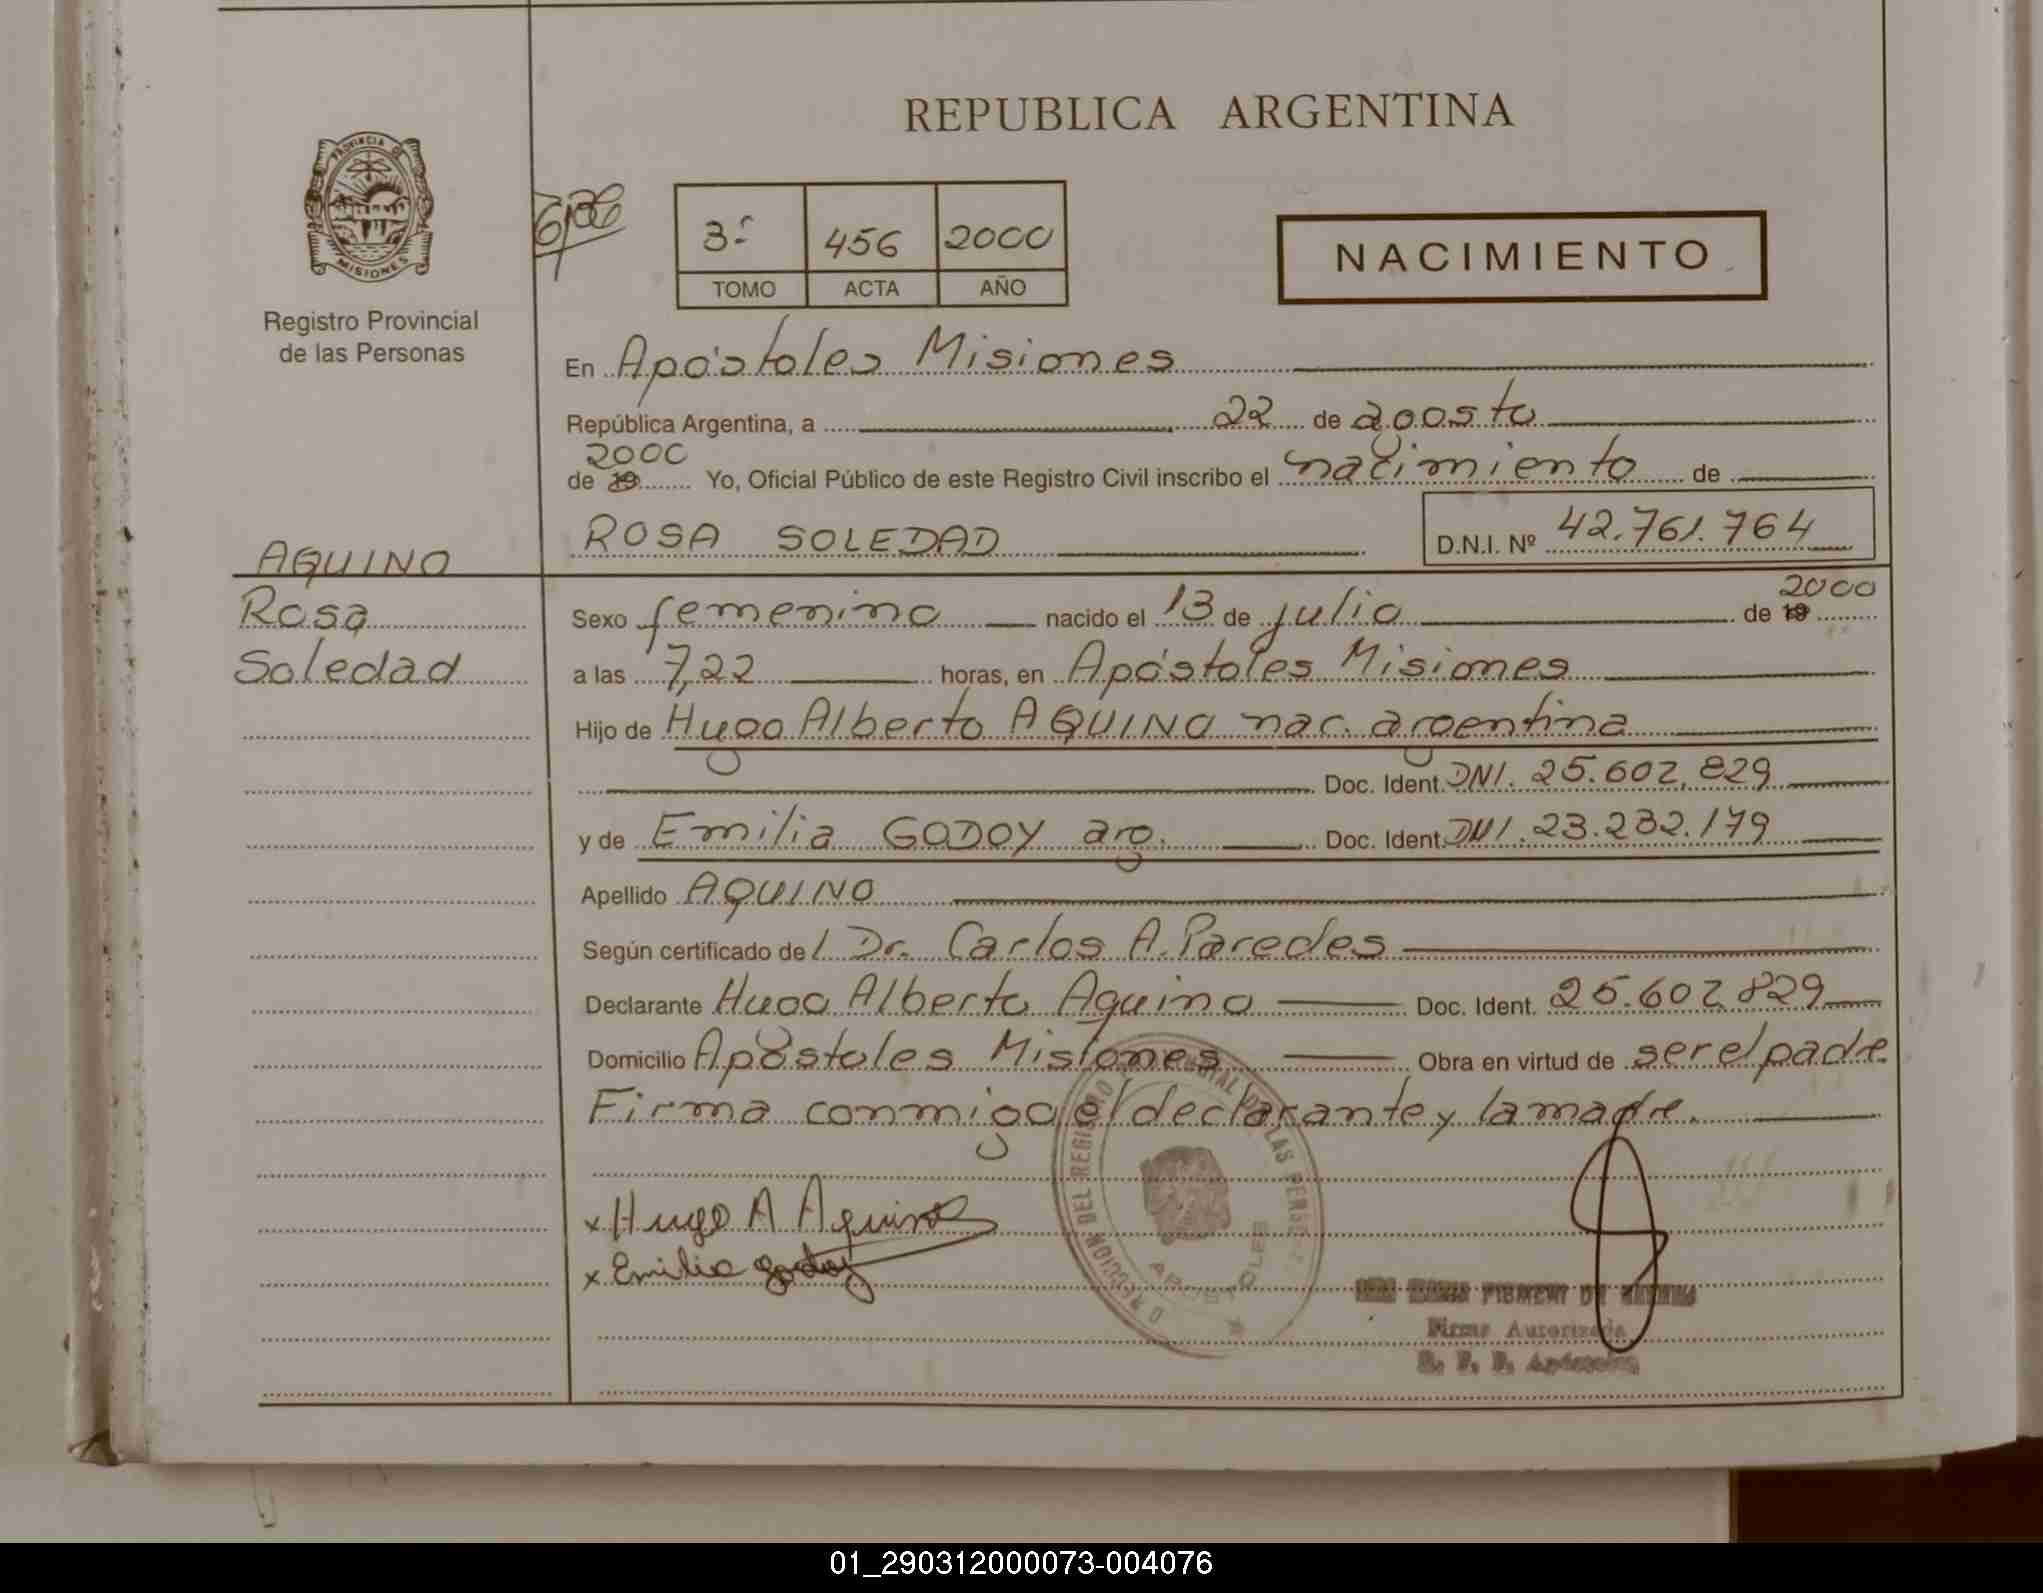 REPUBLICA ARGENTINA
PROVINCIA DE
MISIONES
Registro Provincial
de las Personas
3º 456 2000
TOMO ACTA AÑO
NACIMIENTO
En Apóstoles Misiones
República Argentina, a 22 de agosto
2000
de 19 Yo, Oficial Público de este Registro Civil inscribo el nacimiento de
ROSA SOLEDAD D.N.I. Nº 42.761.764
AQUINO
Rosa
Soledad
2000
Sexo femenino nacido el 13 de julio de 19
a las 7,22 horas, en Apóstoles Misiones
Hijo de Hugo Alberto AQUINO nac. argentina
Doc. Ident. DNI. 25.602.829
y de Emilia GODOY arg. Doc. Ident. DNI. 23.232.179
Apellido AQUINO
Según certificado de l Dr. Carlos A. Paredes
Declarante Hugo Alberto Aquino Doc. Ident. 25.602.829
Domicilio Apóstoles Misiones Obra en virtud de ser el padre
Firma conmigo el declarante y la madre.
x Hugo A Aquino
x Emilia godoy
DIRECCION DEL REGISTRO PROVINCIAL DE LAS PERSONAS
APOSTOLES
Firma Autorizada
R. P. P. Apóstoles
01_290312000073-004076